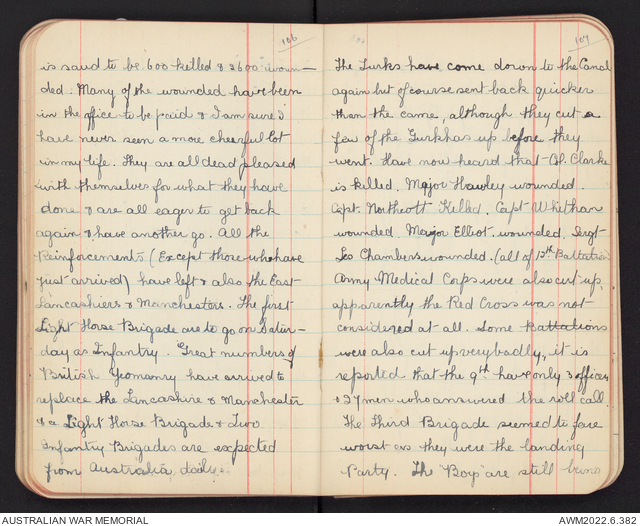 106
is said to be 600 killed & 3600 woun-
ded. Many of the wounded have been
in the office to be paid & I am sure I
have never seen a more cheerful lot
in my life. They are all dead pleased
with themselves for what they have
done & are all eager to get back
again & have another go. All the
Reinforcements (Except those who have
just arrived) have left & also the East
Lancashiers & Manchesters. The first
Light Horse Brigade are to go on Satur-
day as Infantry. Great numbers of
British Yeomanry have arrived to
replace the Lancashire & Manchester
& a Light Horse Brigade & Two
Infantry Brigades are expected
from Australia daily.
107
The Turks have come down to the Canal
again but of course sent back quicker
then the came, although they cut a
few of the Gurkhas up before they
went. Have now heard that Col. Clarke
is killed. Major Hawley wounded.
Capt. Northcott Killed. Capt Whitham
wounded. Major Elliot. wounded. Sergt
Les Chambers wounded. (all of 12th Battalion)
Army Medical Corps were also cut up,
apparently the Red Cross was not
considered at all. Some Battalions
were also cut up very badly, it is
reported that the 9th have only 3 officers
& 27 men who answered the roll call
The Third Brigade seemed to fare
worst as they were the landing
Party. The "Boys" are still being
AUSTRALIAN WAR MEMORIAL
AWM2022.6.382